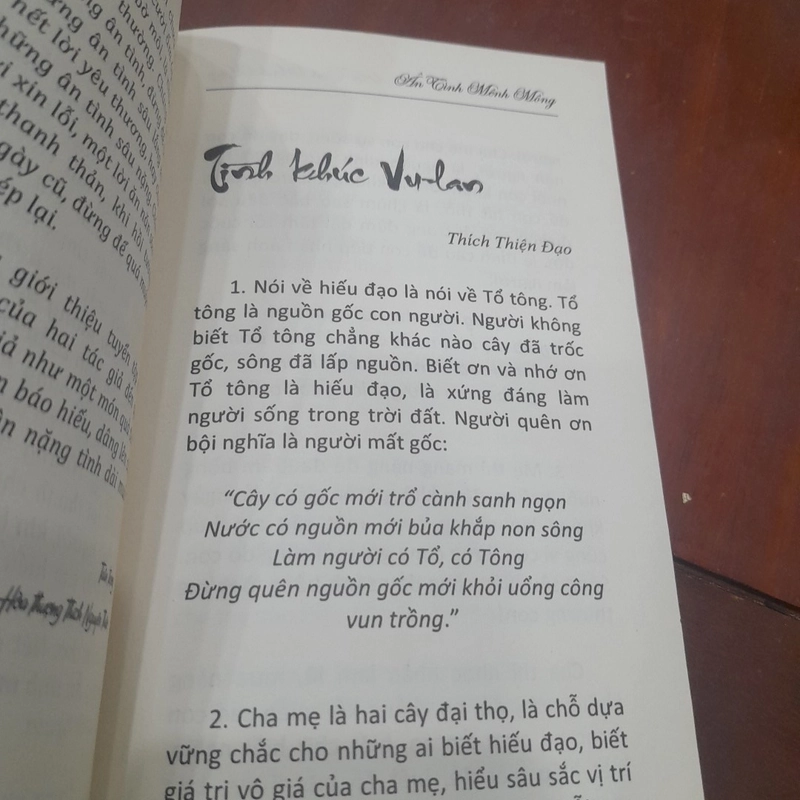 ng ân tình, đừng
thường.
nết lời yêu thương, hay
những ân tình sâu nặng,
xin lỗi, một lời ăn năn
thanh thản, khi hồi
gày cũ, đừng để quá
ép lại.
giới thiệu tuyển tập
của hai tác giả đến
iả như một món quà
báo hiếu, dâng lên
ân nặng tình dài
Hòa Thượng Thích
Ân Tình Mênh Mông
Tình khúc Vu-lan
Thích Thiện Đạo
1. Nói về hiếu đạo là nói về Tổ tông. Tổ
tông là nguồn gốc con người. Người không
biết Tổ tông chẳng khác nào cây đã trốc
gốc, sông đã lấp nguồn. Biết ơn và nhớ ơn
Tổ tông là hiếu đạo, là xứng đáng làm
người sống trong trời đất. Người quên ơn
bội nghĩa là người mất gốc:
“Cây có gốc mới trổ cành sanh ngọn
Nước có nguồn mới bủa khắp non sông
Làm người có Tổ, có Tông
Đừng quên nguồn gốc mới khỏi uổng công
vun trồng.”
2. Cha mẹ là hai cây đại thọ, là chỗ dựa
vững chắc cho những ai biết hiếu đạo, biết
giá trị vô giá của cha mẹ, hiểu sâu sắc vị trí